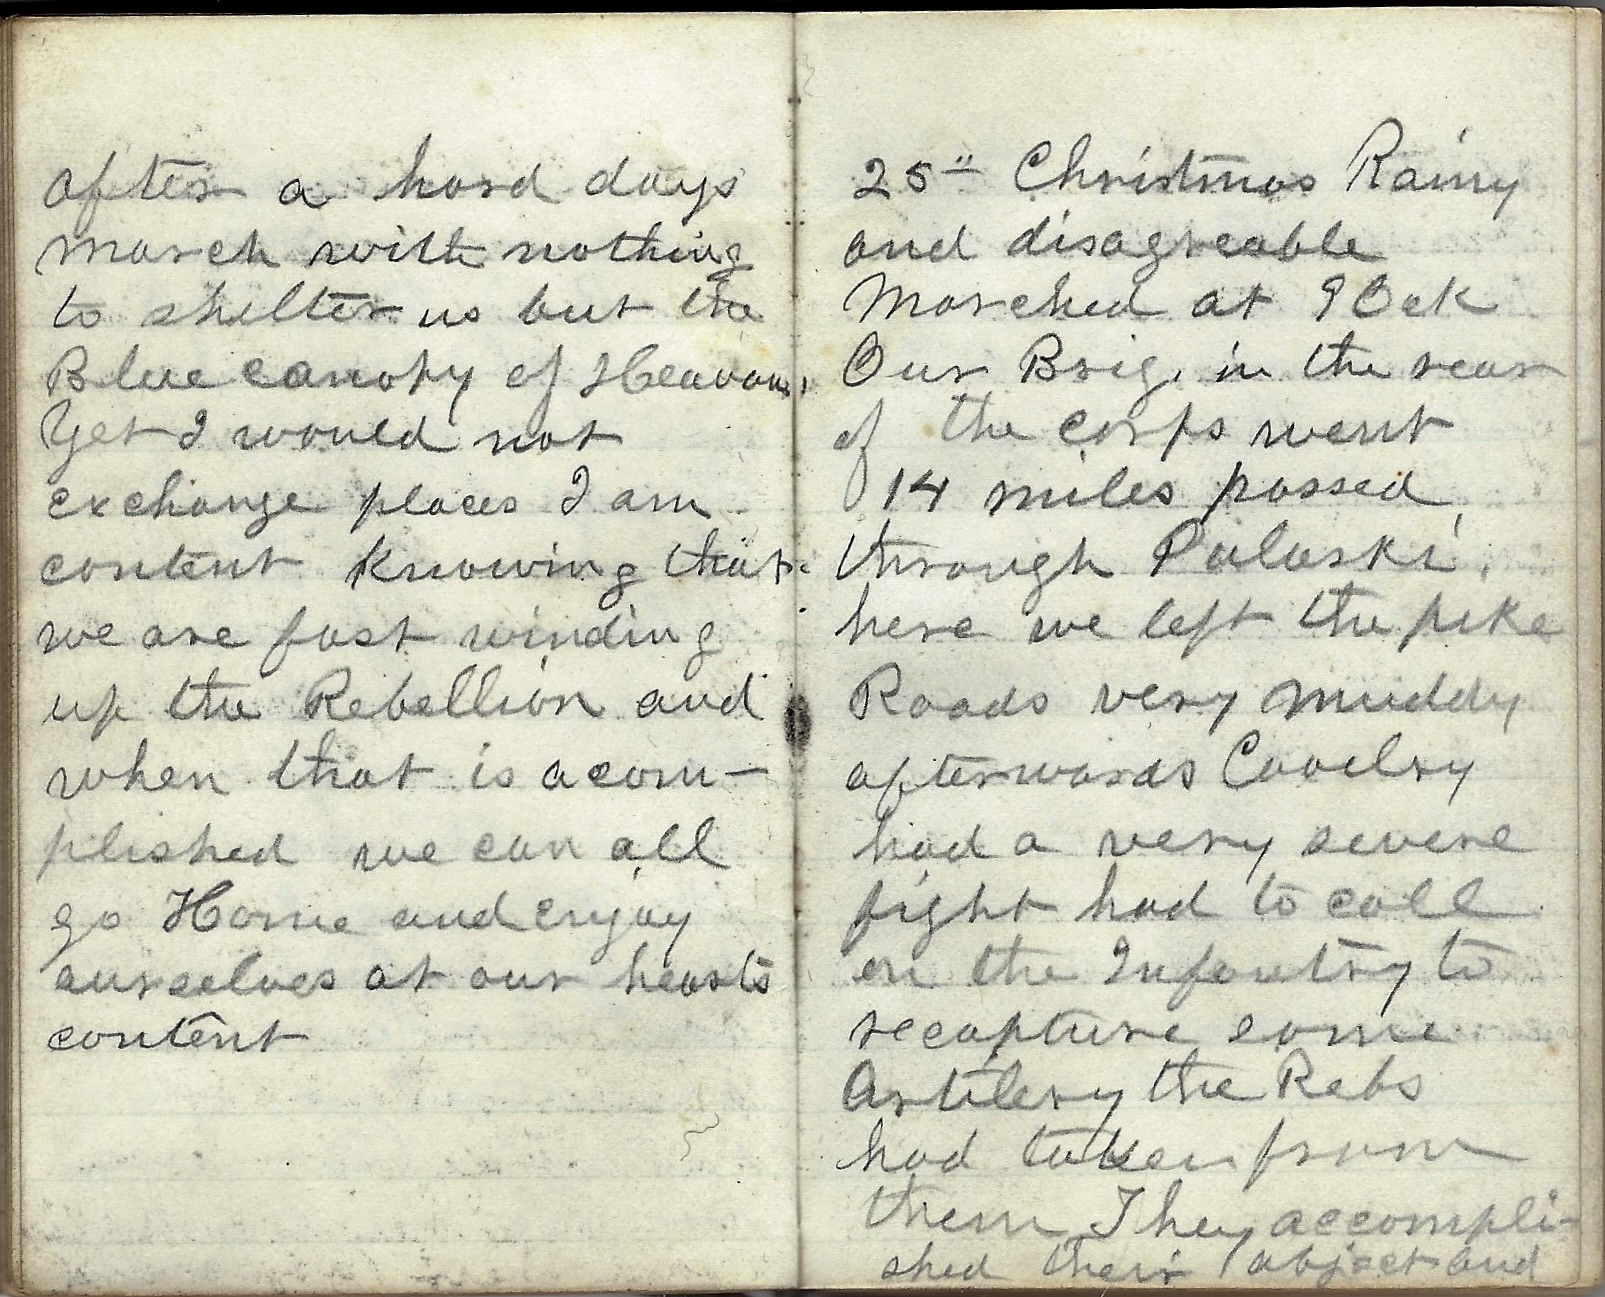 after a hard days
march with nothing
to shelter us but the
Blue canopy of Heavans,
Yet I would not
exchange places I am
content knowing that
we are fast winding
up the Rebellion and
when that is acom-
plished we can all
go Home and enjoy
ourselves at our hearts
content
25th Christmas Rainy
and disagreable
Marched at 9 Ock
Our Brig. in the rear
of the corps went
14 miles passed
through Pulaski,
here we left the pike
Roads very muddy
afterwards Cavelry
had a very severe
fight had to call
on the Infantry to
recapture some
Artilery the Rebs
had taken from
them They accompli-
shed their object and